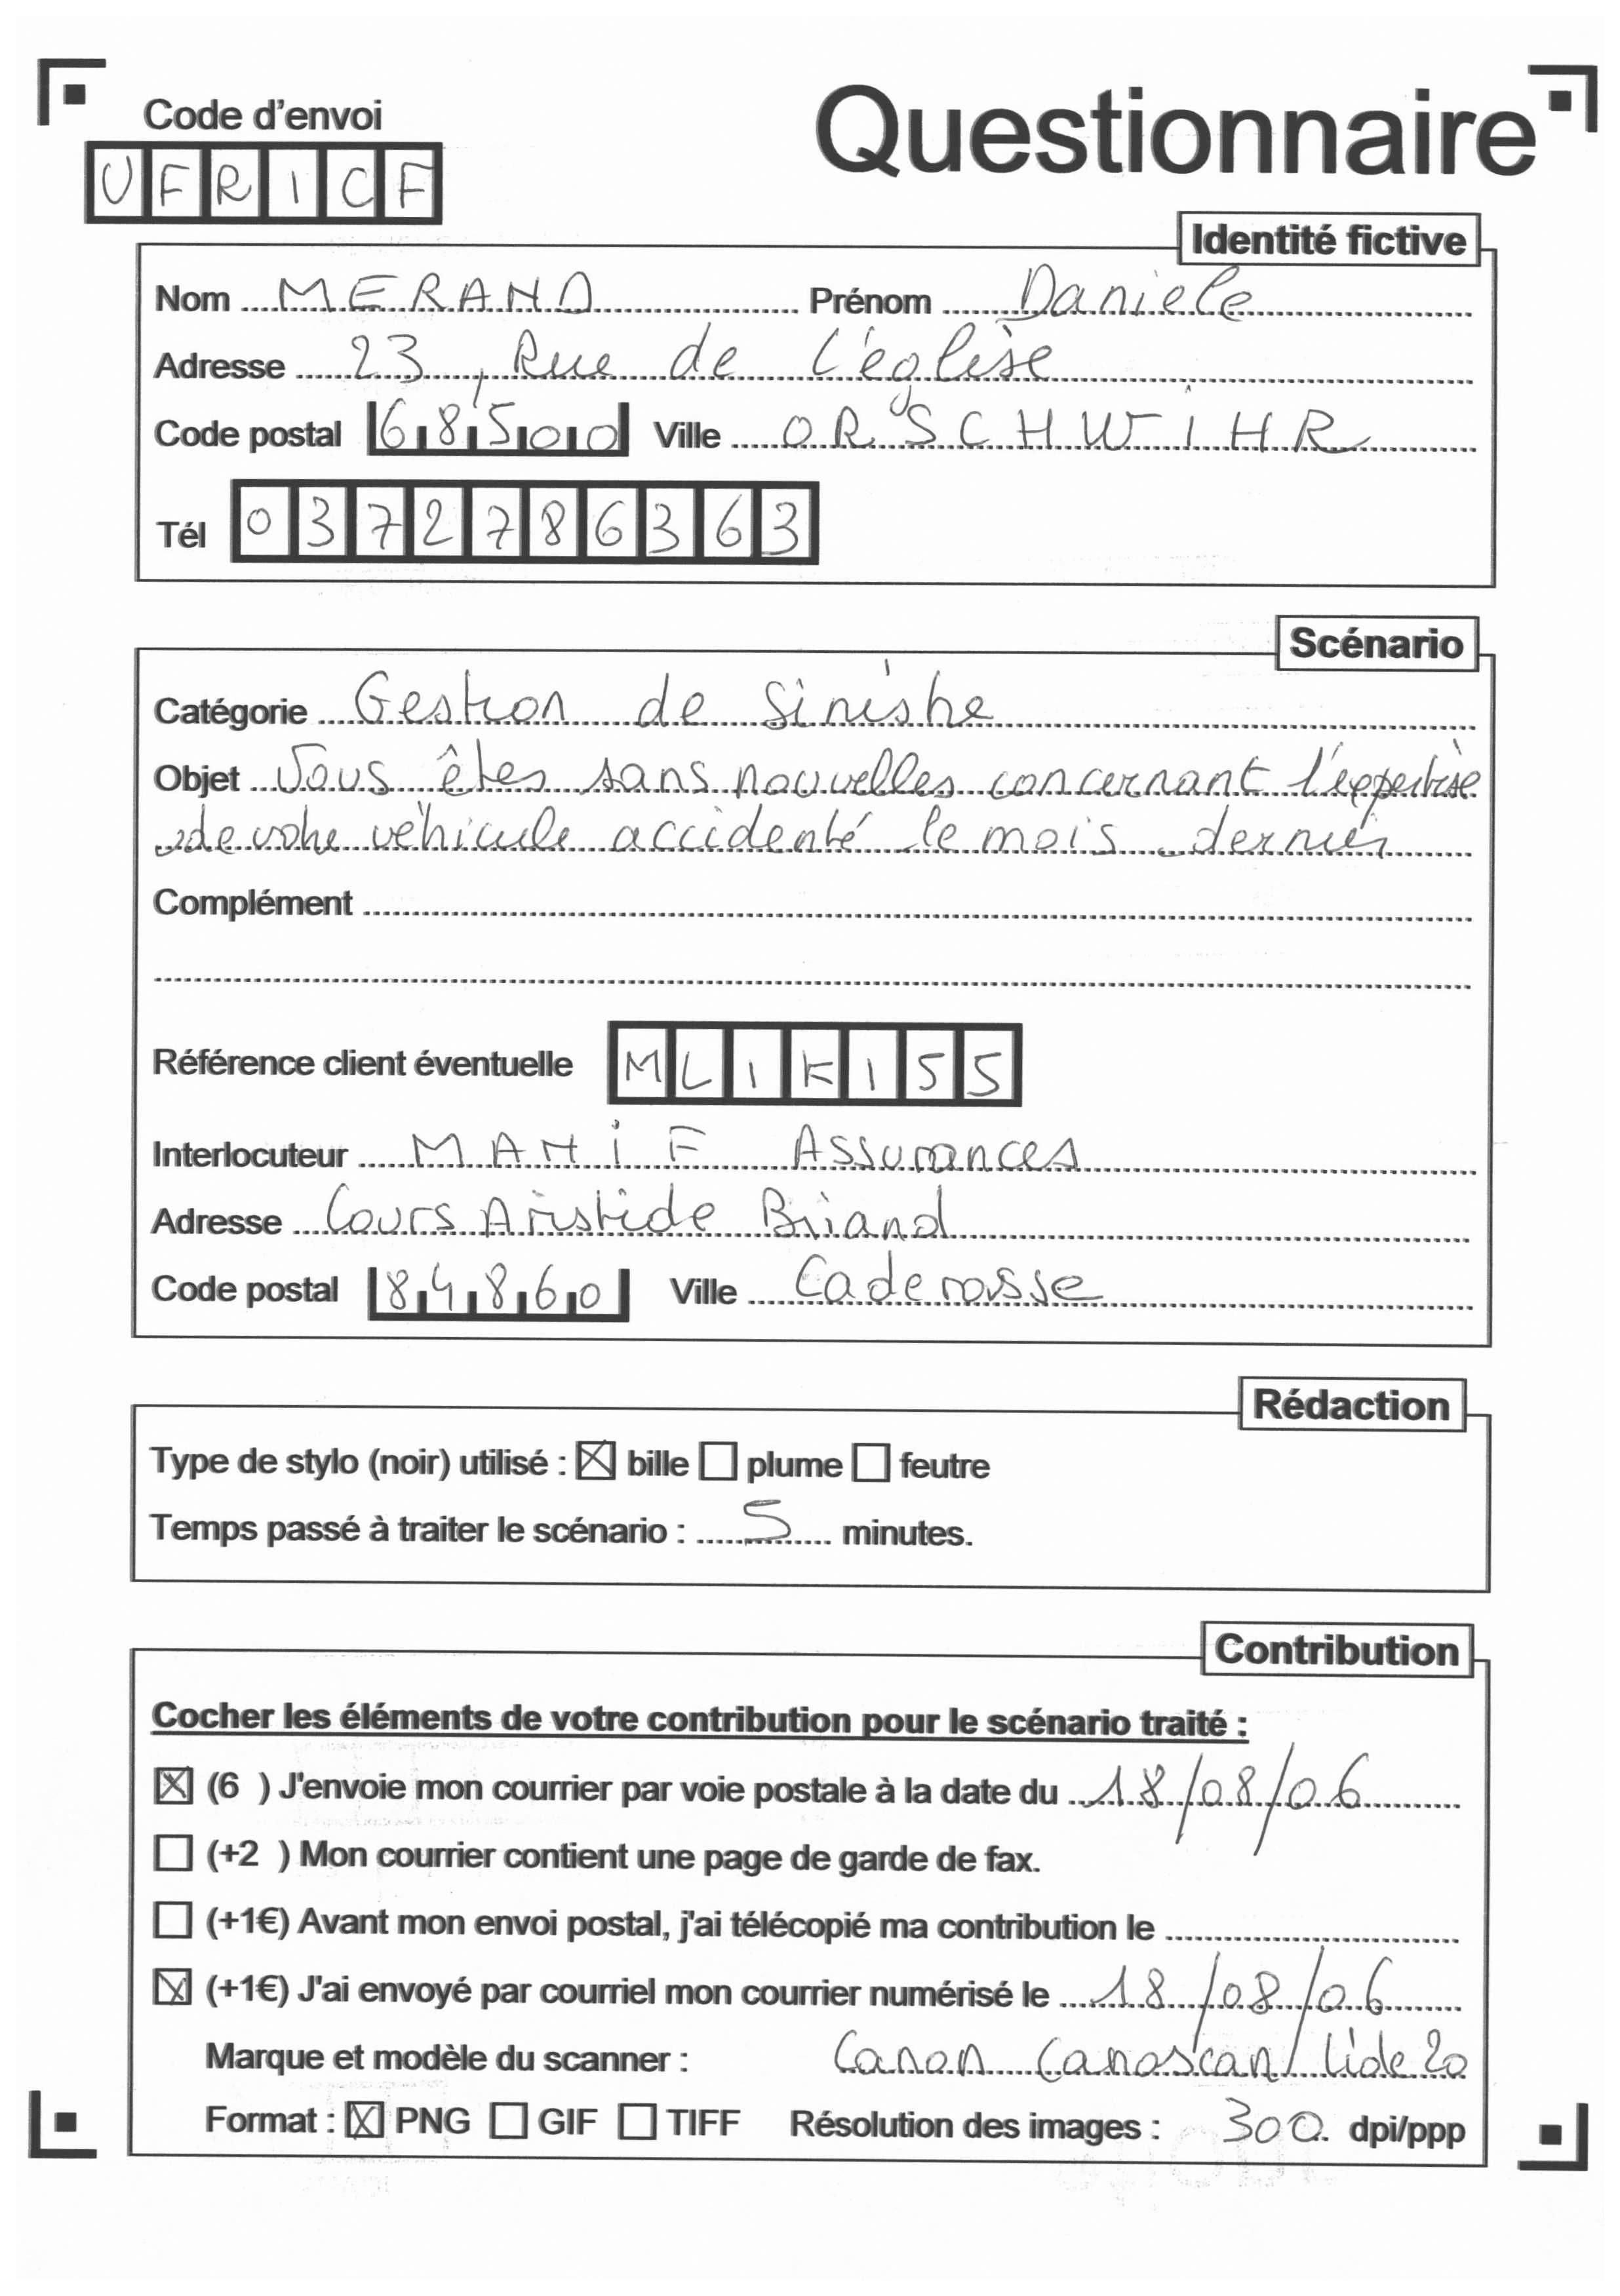 Code d'envoi
Questionnaire
UFRICF
Identité fictive
Nom MERAND Prénom Daniele
Adresse 23, Rue de l'église
Code postal 68500 Ville ORSCHWIHR
Tél 0372786363
Scénario
Catégorie Gestion de Sinistre
Objet Vous êtes sans nouvelles concernant l'expertise
de votre véhicule accidenté le mois dernier
Complément
Référence client éventuelle MLIKI55
Interlocuteur MAHiF Assurances
Adresse Cours Aristide Briand
Code postal 84860 Ville Caderousse
Rédaction
Type de stylo (noir) utilisé : ☒ bille ☐ plume ☐ feutre
Temps passé à traiter le scénario : 5 minutes.
Contribution
Cocher les éléments de votre contribution pour le scénario traité :
☒ (6 ) J'envoie mon courrier par voie postale à la date du 18/08/06
☐ (+2 ) Mon courrier contient une page de garde de fax.
☐ (+1€) Avant mon envoi postal, j'ai télécopié ma contribution le
☒ (+1€) J'ai envoyé par courriel mon courrier numérisé le 18/08/06
Marque et modèle du scanner : Canon Canoscan lide 20
Format : ☒ PNG ☐ GIF ☐ TIFF Résolution des images : 300 dpi/ppp